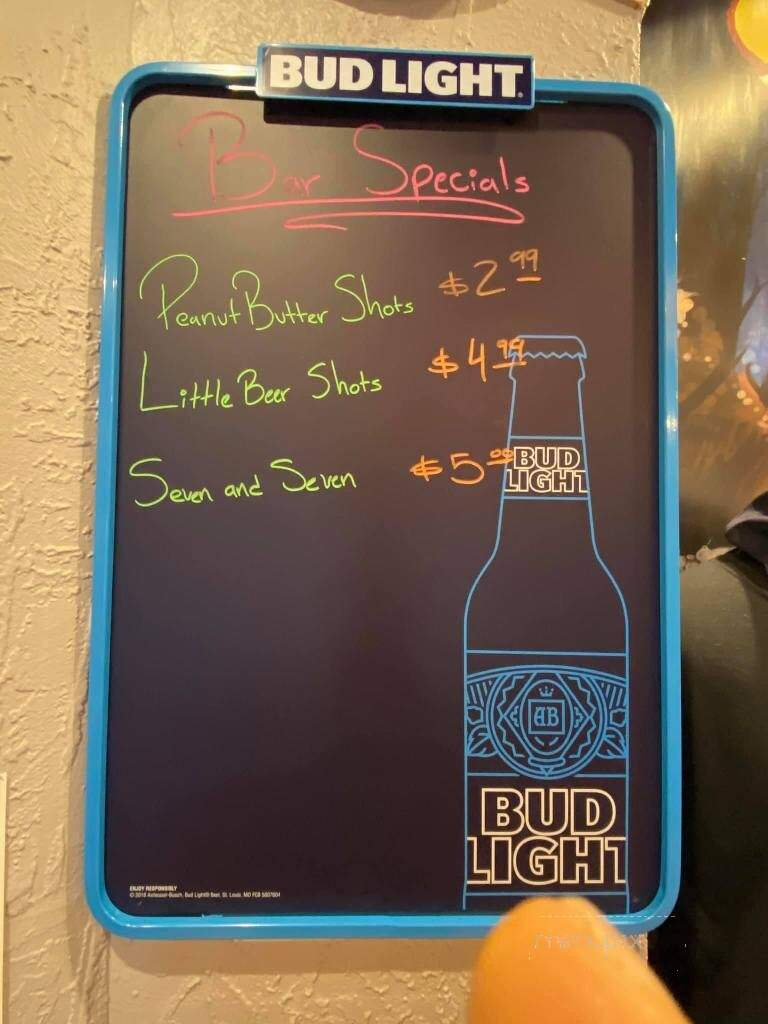 BUD LIGHT.
Bar Specials
Peanut Butter Shots $2.99
Little Beer Shots $4.99
Seven and Seven $5.00
BUD
LIGHT
AB
BUD
LIGHT
ENJOY RESPONSIBLY
© 2018 Anheuser-Busch, Bud Light® Beer, St. Louis, MO